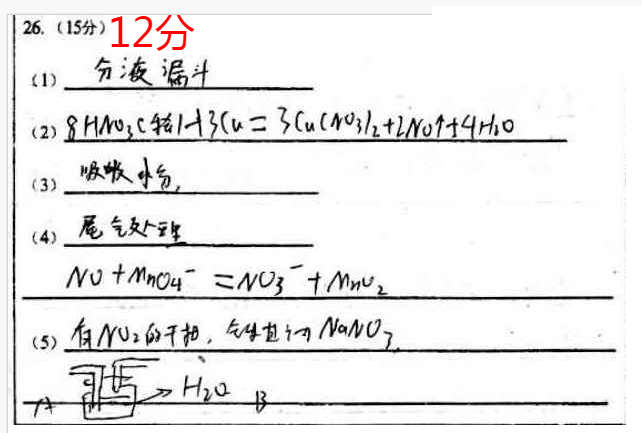 26.（15分）12分
（1） 分液漏斗
（2） 8HNO₃(稀)+3Cu = 3Cu(NO₃)₂+2NO↑+4H₂O
（3） 吸收水分,
（4） 尾气处理
NO + MnO₄⁻ = NO₃⁻ + MnO₂
（5） 有NO₂的干扰, NaNO₃
A → H₂O B